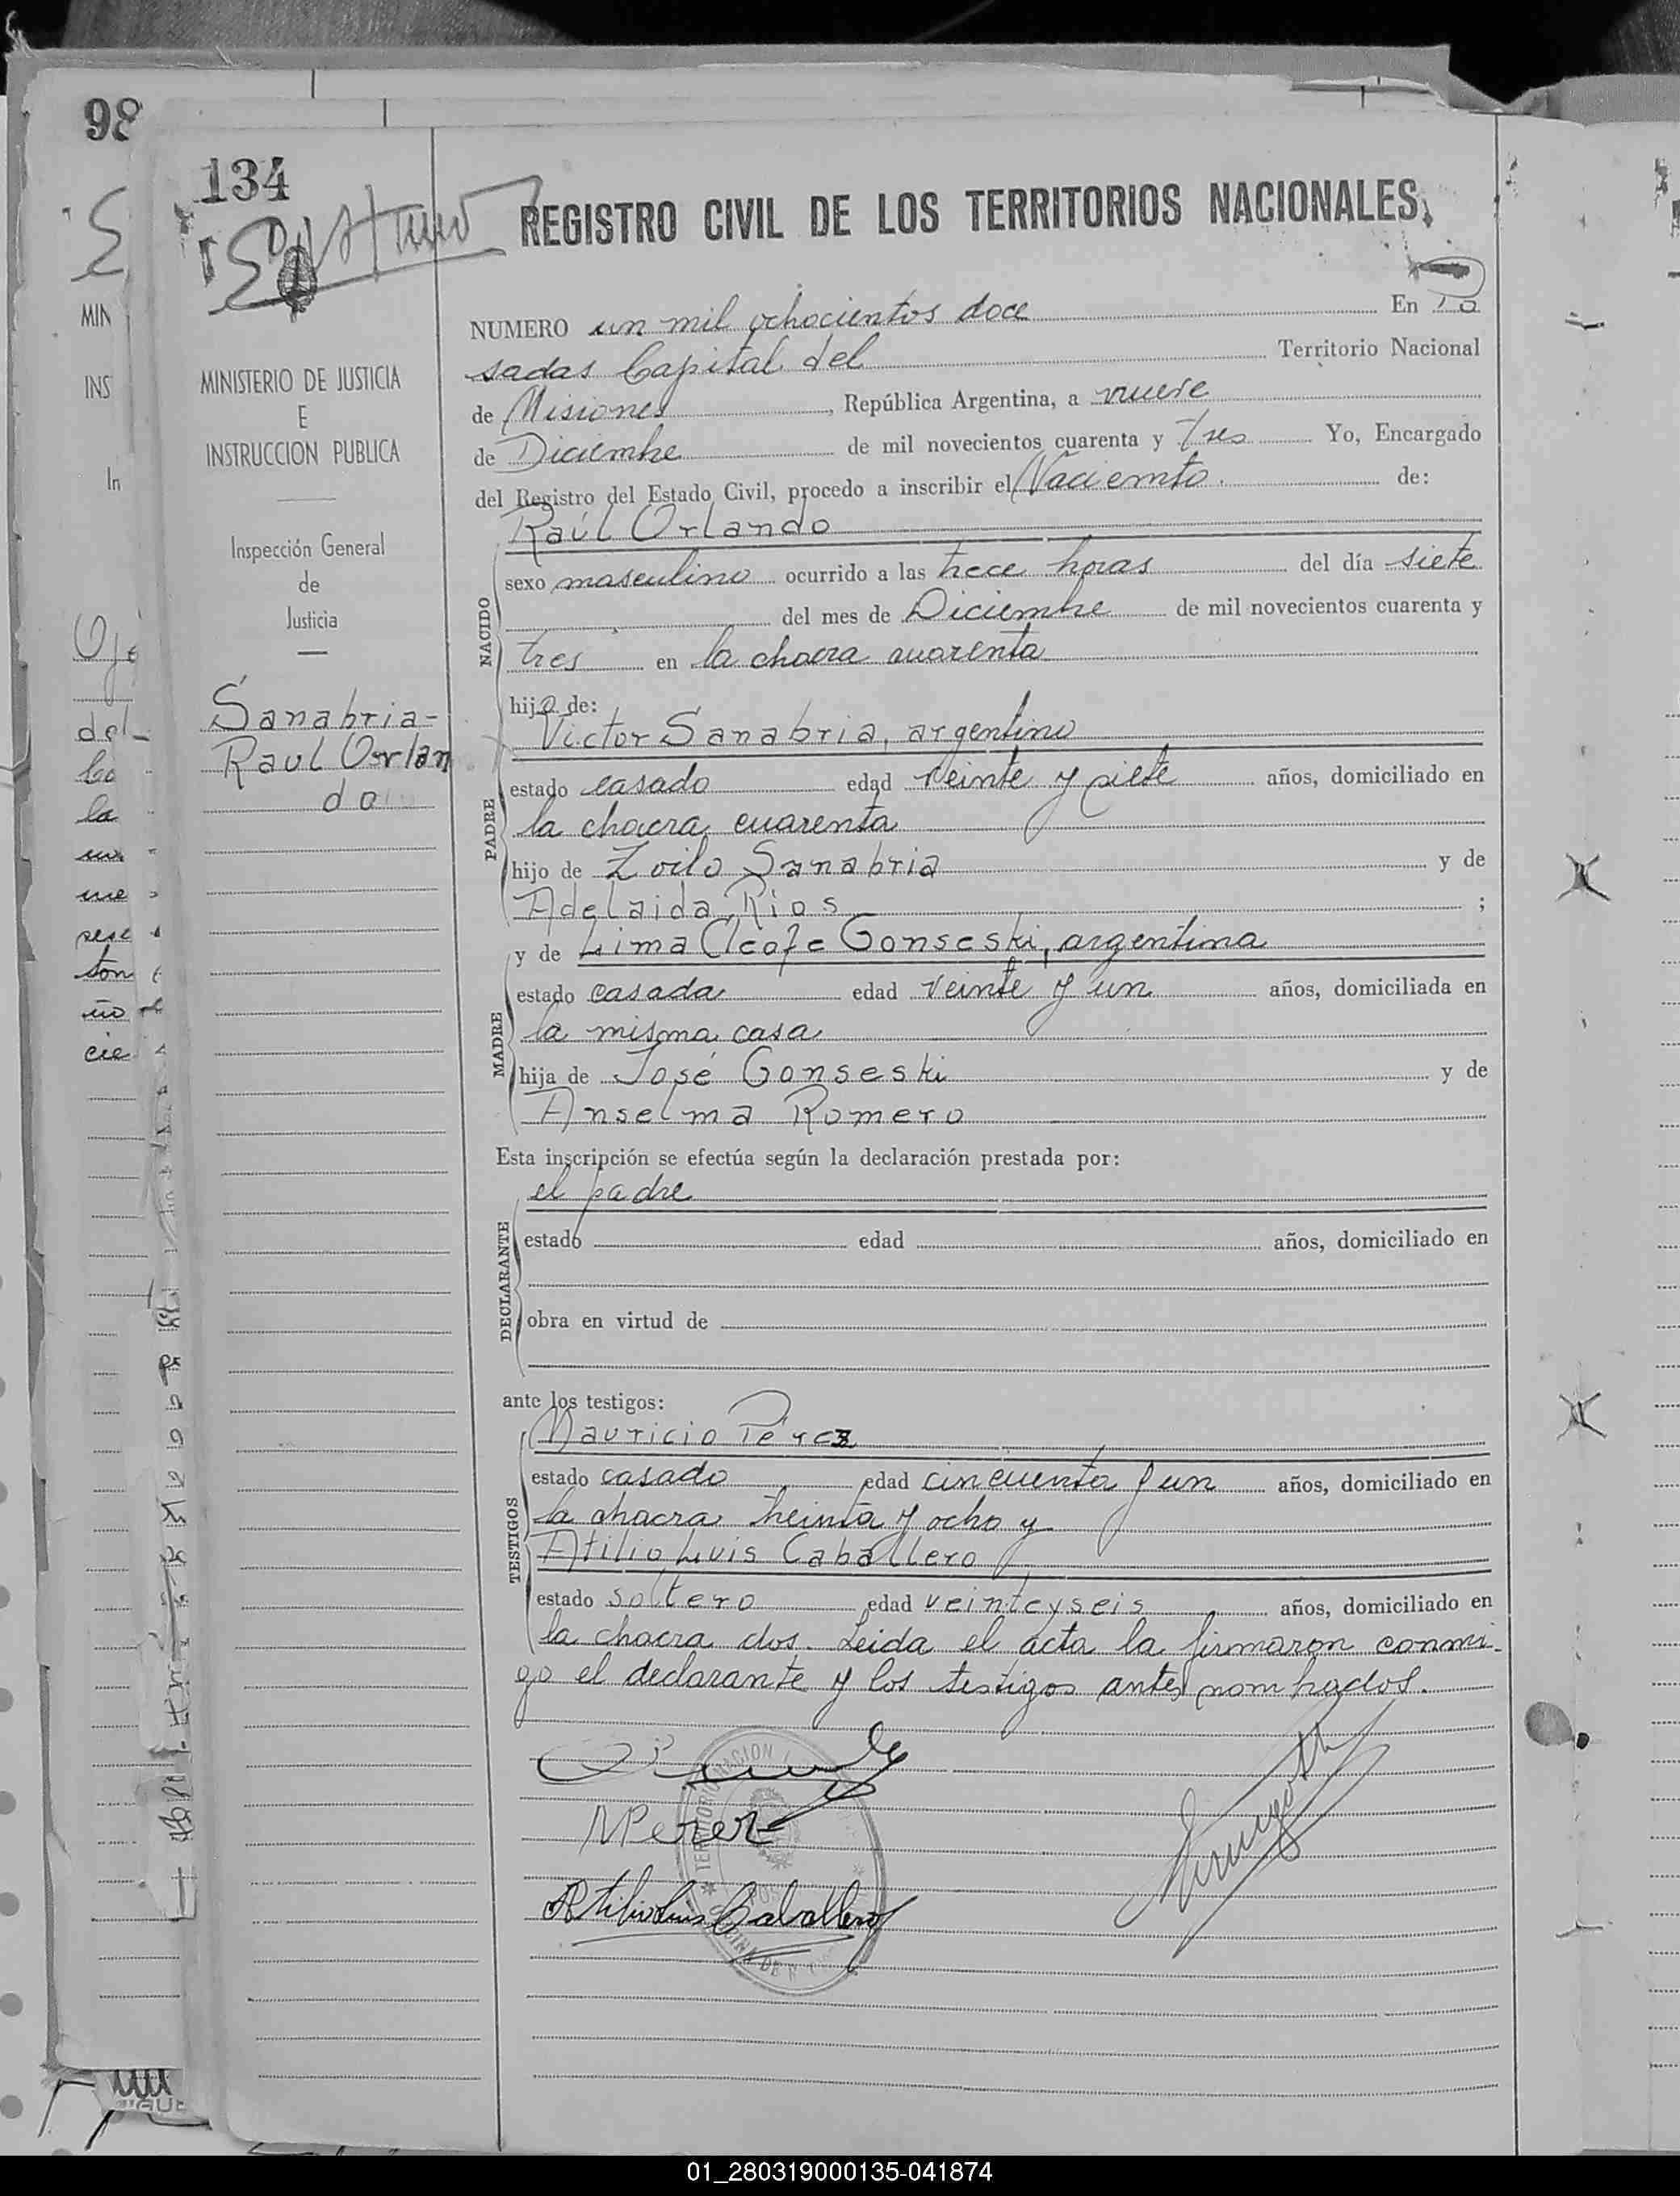 98
134
REGISTRO CIVIL DE LOS TERRITORIOS NACIONALES
MINISTERIO DE JUSTICIA
E
INSTRUCCION PUBLICA
Inspección General
de
Justicia
Sanabria-
Raul Orlan
do
NUMERO un mil ochocientos doce En Po
sadas Capital del Territorio Nacional
de Misiones, República Argentina, a nueve
de Diciembre de mil novecientos cuarenta y tres Yo, Encargado
del Registro del Estado Civil, procedo a inscribir el Naciemto. de:
NACIDO
Raúl Orlando
sexo masculino ocurrido a las trece horas del día siete
del mes de Diciembre de mil novecientos cuarenta y
tres en la chacra cuarenta
hijo de:
PADRE
Victor Sanabria, argentino
estado casado edad veinte y siete años, domiciliado en
la chacra cuarenta
hijo de Zoilo Sanabria y de
Adelaida Rios ;
MADRE
y de Lima Cleofe Gonseski, argentina
estado casada edad veinte y un años, domiciliada en
la misma casa
hija de José Gonseski y de
Anselma Romero
Esta inscripción se efectúa según la declaración prestada por:
DECLARANTE
el padre
estado edad años, domiciliado en
obra en virtud de
ante los testigos:
TESTIGOS
Mauricio Pérez
estado casado edad cincuenta y un años, domiciliado en
la chacra treinta y ocho y
Atilio Luis Caballero
estado soltero edad veinteyseis años, domiciliado en
la chacra dos. Leida el acta la firmaron conmi-
go el declarante y los testigos antes nombrados.
MPerez
Atilio Luis Caballero
01_280319000135-041874